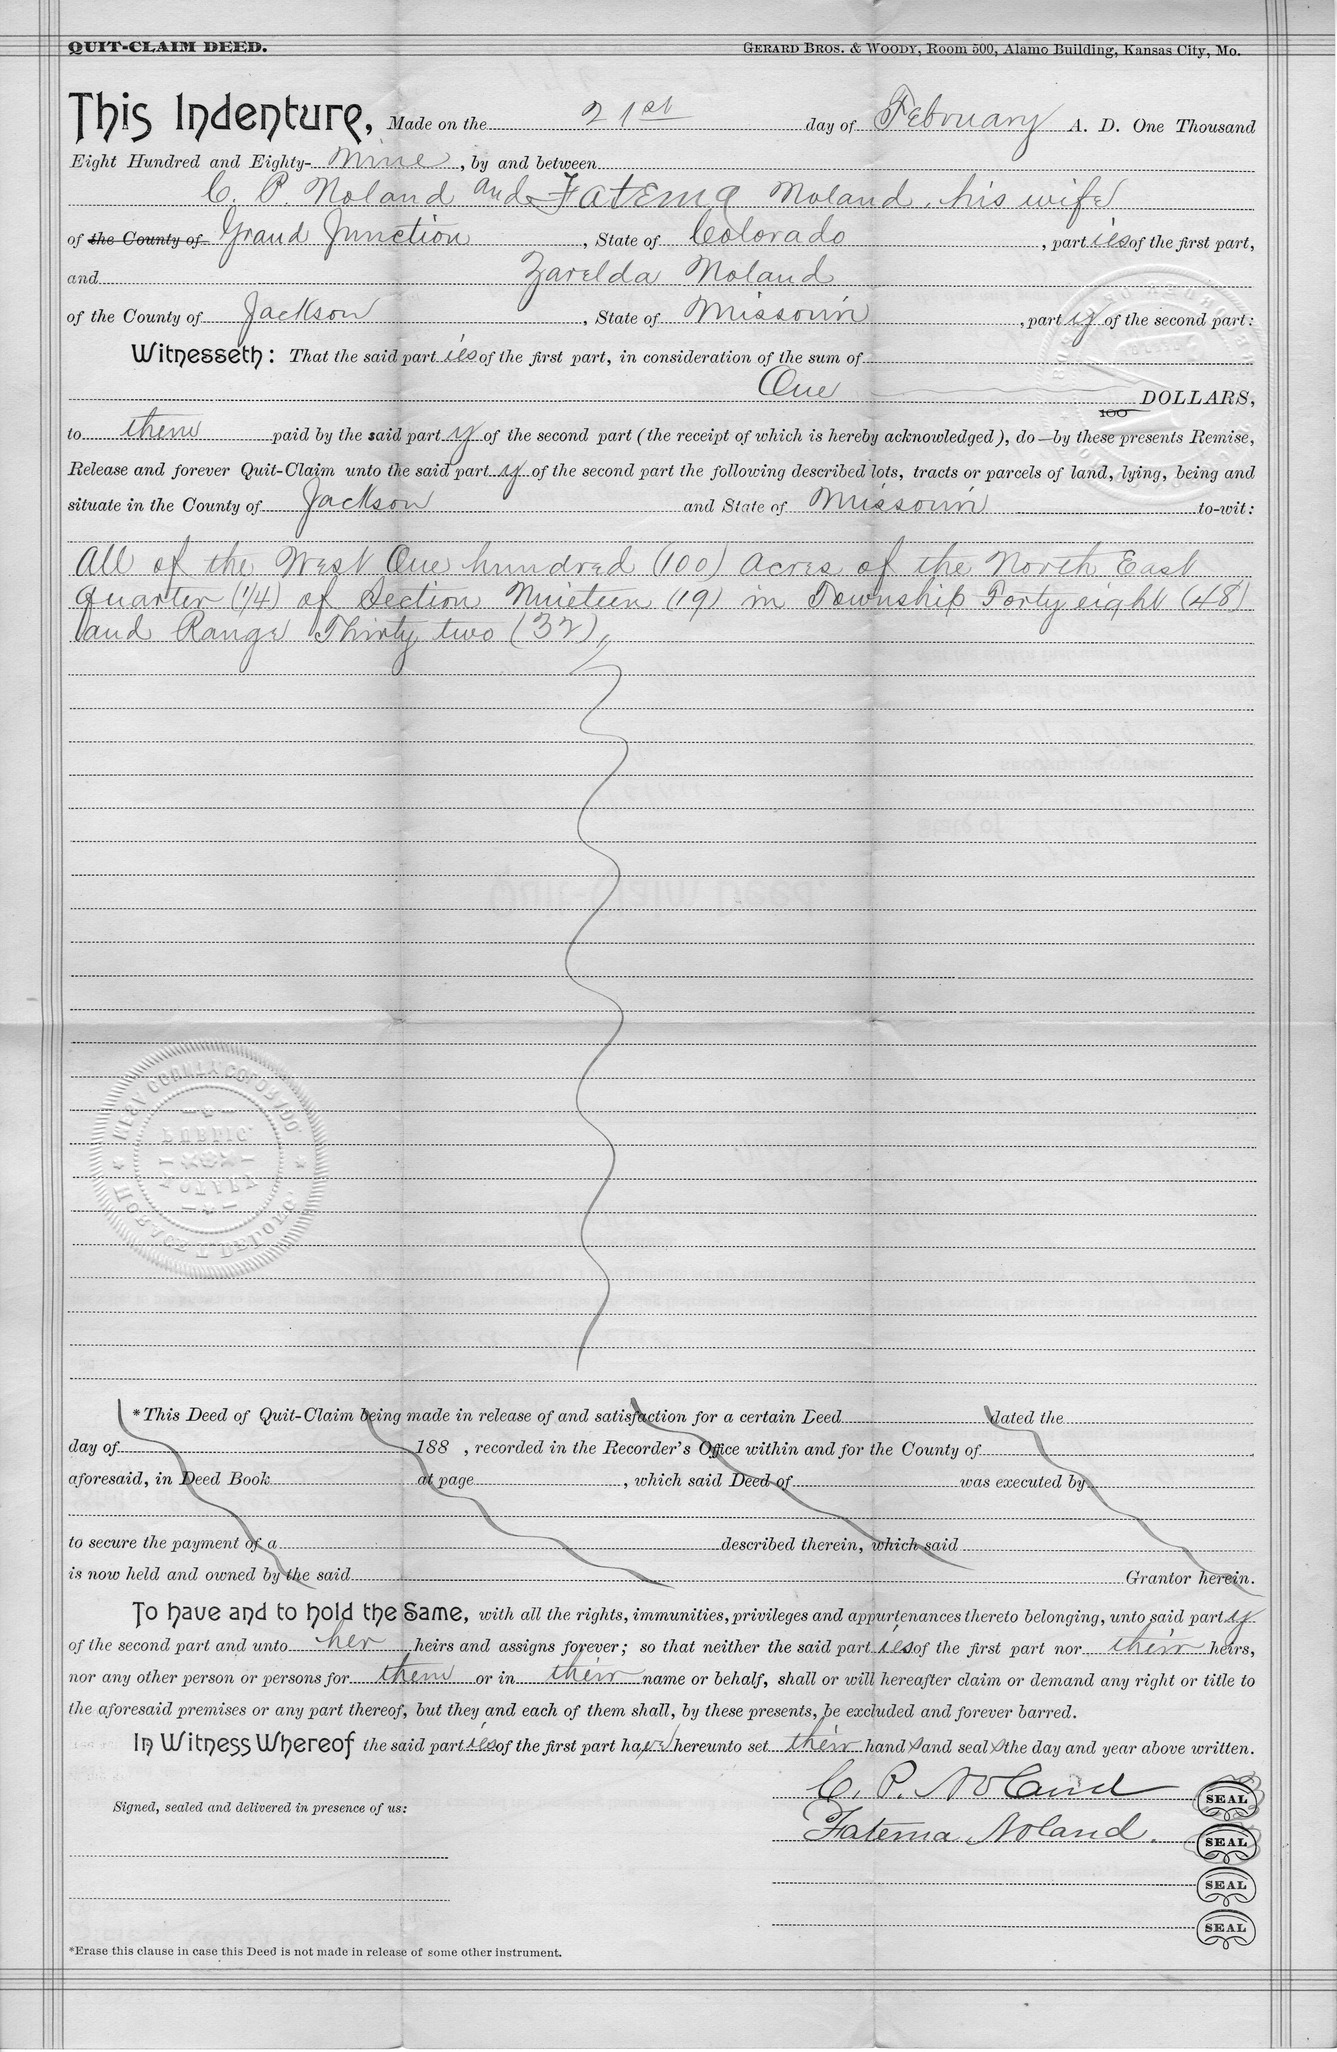 QUIT-CLAIM DEED. GERARD BROS. & WOODY, Room 500, Alamo Building, Kansas City, Mo.
This Indenture, Made on the 21st day of February A. D. One Thousand
Eight Hundred and Eighty-Nine, by and between
C. P. Noland and Fatema Noland, his wife
of the County of Grand Junction, State of Colorado, parties of the first part,
and Zarelda Noland
of the County of Jackson, State of Missouri, party of the second part:
Witnesseth: That the said parties of the first part, in consideration of the sum of
One 100 DOLLARS,
to them paid by the said party of the second part (the receipt of which is hereby acknowledged), do—by these presents Remise,
Release and forever Quit-Claim unto the said party of the second part the following described lots, tracts or parcels of land, lying, being and
situate in the County of Jackson and State of Missouri to-wit:
All of the West One hundred (100) Acres of the North East
quarter (1/4) of Section Nineteen (19) in Township Forty eight (48)
and Range Thirty two (32),
MESA COUNTY COLORADO
PUBLIC
NOTARY
HORACE T DELONG
*This Deed of Quit-Claim being made in release of and satisfaction for a certain Deed dated the
day of 188 , recorded in the Recorder's Office within and for the County of
aforesaid, in Deed Book at page , which said Deed of was executed by
to secure the payment of a described therein, which said
is now held and owned by the said Grantor herein.
To have and to hold the Same, with all the rights, immunities, privileges and appurtenances thereto belonging, unto said party
of the second part and unto her heirs and assigns forever; so that neither the said parties of the first part nor their heirs,
nor any other person or persons for them or in their name or behalf, shall or will hereafter claim or demand any right or title to
the aforesaid premises or any part thereof, but they and each of them shall, by these presents, be excluded and forever barred.
In Witness Whereof the said parties of the first part have hereunto set their hands and seals the day and year above written.
C. P. Noland SEAL
Signed, sealed and delivered in presence of us:
Fatema Noland. SEAL
SEAL
SEAL
*Erase this clause in case this Deed is not made in release of some other instrument.